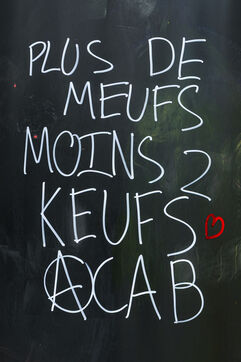 PLUS DE
MEUFS
MOINS 2
KEUFS
ACAB